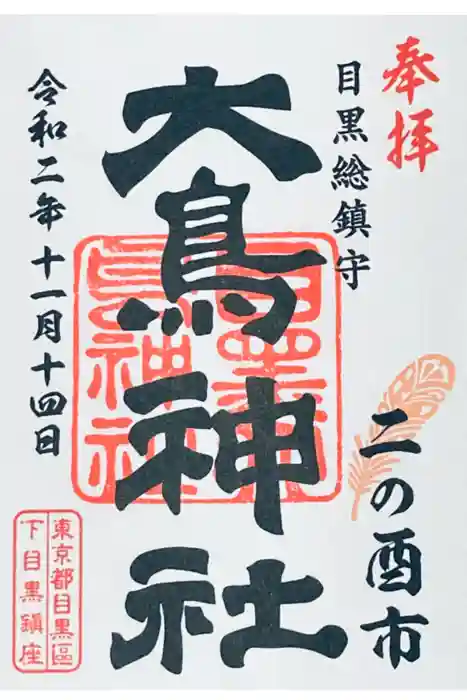 奉拝
目黒総鎮守
二の酉市
大鳥神社
令和二年十一月十四日
東京都目黒區
下目黒鎮座